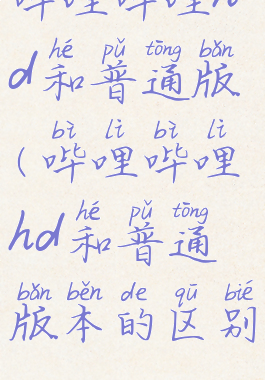 哔哩哔哩h
hé pǔ tōng bǎn
d和普通版
bì lǐ bì lǐ
(哔哩哔哩
hé pǔ tōng
hd和普通
bǎn běn de qū bié
版本的区别